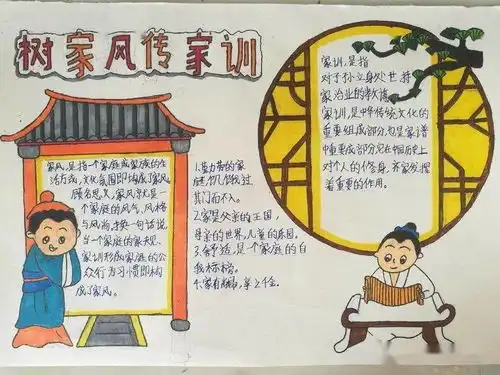 树家风传家训
家风,是指一个家庭或家族的生
活方式,文化氛围即构成了家风。
顾名思义,家风就是一
个家庭的风气,风格
与风尚,换一句话说,
当一个家庭的家夫
家训形成家庭的公
众行为习惯即构
成了家风。
1.勤劳的家
庭,饥饿过
其门而不入。
2.家是父亲的王国,
母亲的世界,儿童的乐园。
3.舒适,是一个家庭的自
我标榜。
4.家有,拿之千金。
家训,是指
对子孙立身处世持
家治业的教诲
家训,是中华传统文化的
重要组成部分,也是家谱
中重要成部分,它在中国历史上
对个人的修身、齐家发挥
着重要的作用。